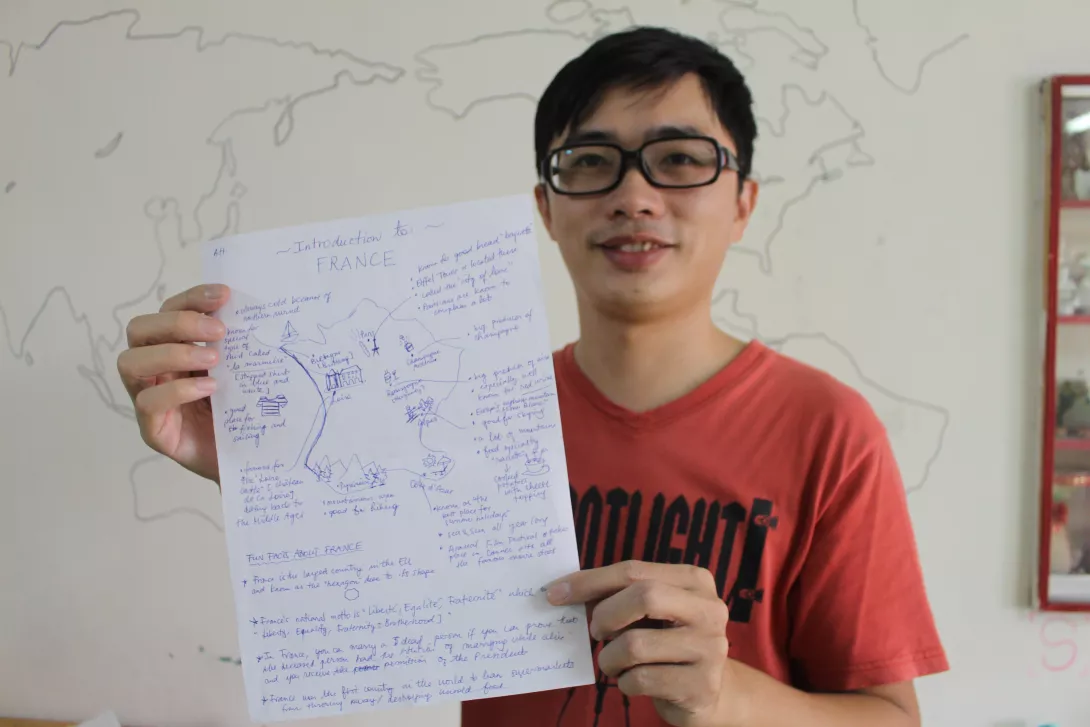 A4
~ Introduction to: ~
FRANCE
• always cold because of
northern wind
known for
special
type of
shirt called
"la marinière"
[stripped shirt
in blue and
white]
• good
place for
fishing and
sailing
• famous for
the Loire
castle [château
de la Loire]
dating back to
the Middle Ages
• known for good bread "baguette"
• Eiffel Tower is located there
• called the "city of love"
• Parisians are known to
complain a lot
• big producer of
champagne
• big producer of wine
especially well
known for red wine
• good for camping
• a lot of mountain
• food specialty
potatoes
with cheese
topping
Paris
Champagne
Ardenne
Loire
Alpes
Pyrénées
• mountainous area
• good for hiking
Côte d'Azur
• known as the
best place for
summer holidays
• sea & sun all year long
• Annual Film Festival
place in Cannes
famous movie stars
FUN FACTS ABOUT FRANCE
* France is the largest country in the EU
and known as the "hexagon" due to its shape
* France's national motto is "Liberté, Egalité, Fraternité" which
- Liberty, Equality, Fraternity [= Brotherhood]
* In France, you can marry a dead person if you can prove that
the deceased person had the intention of marrying while alive
and you receive the permission of the President
* France was the first country in the world to ban supermarkets
from throwing away/destroying unsold food
SPOTLIGHT
S